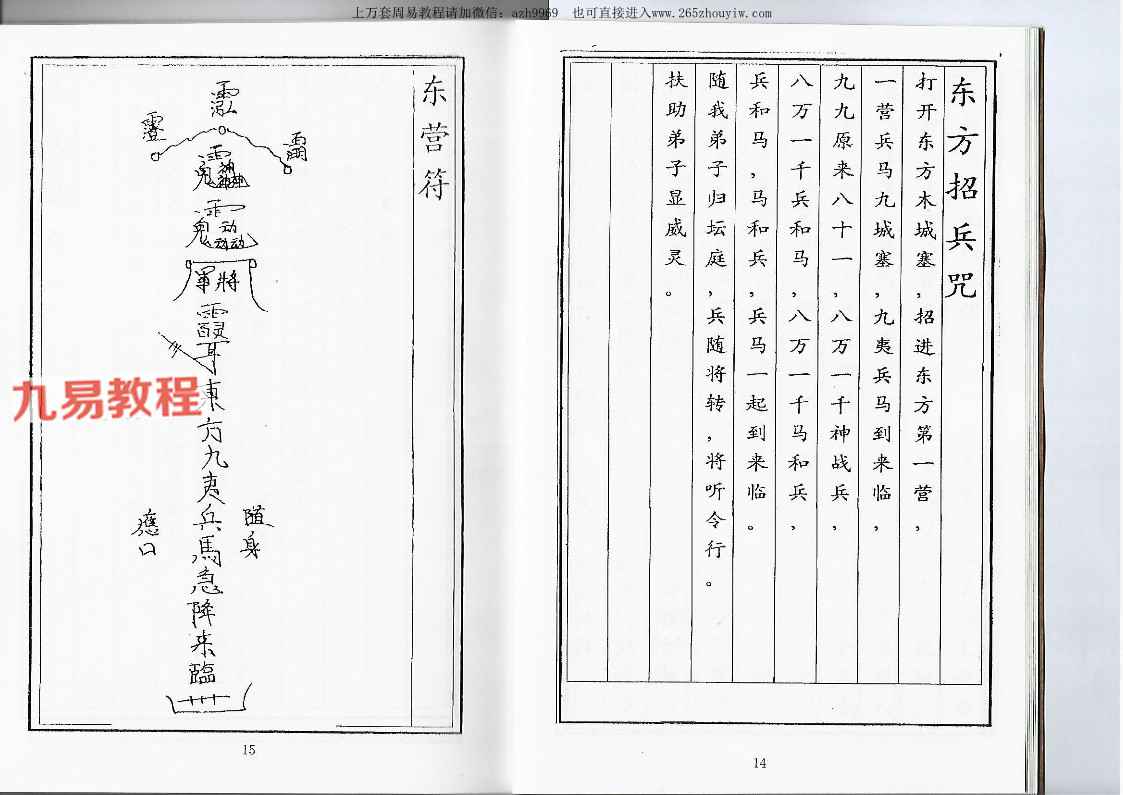 上万套周易教程请加微信：azh9969　也可直接进入www.265zhouyiw.com
东方招兵咒
打开东方木城塞，招进东方第一营，
一营兵马九城塞，九夷兵马到来临，
九九原来八十一，八万一千神战兵，
八万一千兵和马，八万一千马和兵，
兵和马，马和兵，兵马一起到来临。
随我弟子归坛庭，兵随将转，将听令行。
扶助弟子显威灵。
14
东营符
將軍
東方九夷兵馬急降来臨
隨身
應口
九易教程
15